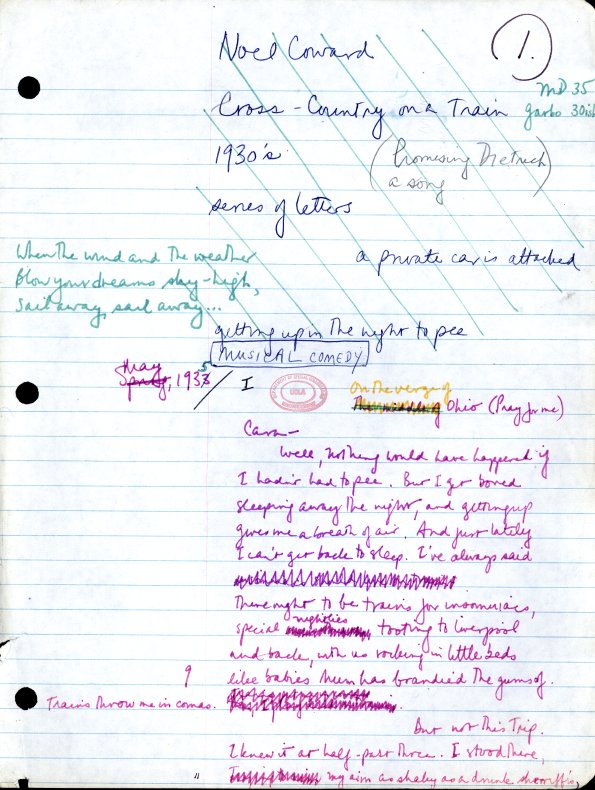 1.
Noel Coward
MD 35
Cross-Country on a Train
garbo 30ish
1930's
(Promising Dietrich
a song)
series of letters
When the wind and the weather
Blow your dreams sky-high,
Sail away, sail away...
a private car is attached
getting up in the night to pee
MUSICAL COMEDY
May
Spring, 1935
I
UCLA
On the verge of
The middle of Ohio (Pray for me)
Cara—
Well, nothing would have happened if
I hadn't had to pee. But I get bored
sleeping away the night, and getting up
gives me a breath of air. And just lately
I can't get back to sleep. I've always said
There ought to be trains for insomniacs,
nighties
special tooting to Liverpool
and back, with us rocking in little beds
like babies Mum has brandied the gums of.
9
Trains throw me in comas.
But not this Trip.
I knew it at half-past three. I stood there,
my aim as shaky as a drunk sheriff's,